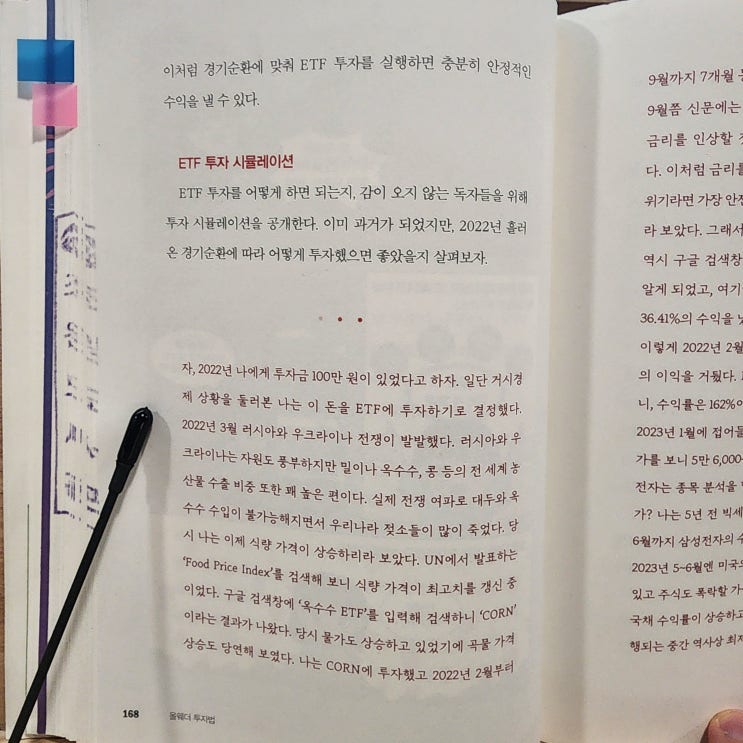 이처럼 경기순환에 맞춰 ETF 투자를 실행하면 충분히 안정적인
수익을 낼 수 있다.
ETF 투자 시뮬레이션
ETF 투자를 어떻게 하면 되는지, 감이 오지 않는 독자들을 위해
투자 시뮬레이션을 공개한다. 이미 과거가 되었지만, 2022년 흘러
온 경기순환에 따라 어떻게 투자했으면 좋았을지 살펴보자.
자, 2022년 나에게 투자금 100만 원이 있었다고 하자. 일단 거시경
제 상황을 둘러본 나는 이 돈을 ETF에 투자하기로 결정했다.
2022년 3월 러시아와 우크라이나 전쟁이 발발했다. 러시아와 우
크라이나는 자원도 풍부하지만 밀이나 옥수수, 콩 등의 전 세계 농
산물 수출 비중 또한 꽤 높은 편이다. 실제 전쟁 여파로 대두와 옥
수수 수입이 불가능해지면서 우리나라 젖소들이 많이 죽었다. 당
시 나는 이제 식량 가격이 상승하리라 보았다. UN에서 발표하는
‘Food Price Index’를 검색해 보니 식량 가격이 최고치를 갱신 중
이었다. 구글 검색창에 ‘옥수수 ETF’를 입력해 검색하니 ‘CORN’
이라는 결과가 나왔다. 당시 물가도 상승하고 있었기에 곡물 가격
상승도 당연해 보였다. 나는 CORN에 투자했고 2022년 2월부터
168 올웨더 투자법
9월까지 7개월
9월쯤 신문에는
금리를 인상할
다. 이처럼 금리를
위기라면 가장
라 보았다. 그래서
역시 구글 검색창
알게 되었고, 여기
36.41%의 수익을
이렇게 2022년 2월
의 이익을 거뒀다.
니, 수익률은 162%
2023년 1월에 접어들
가를 보니 5만 6,000
전자는 종목 분석을
가? 나는 5년 전 빅세
6월까지 삼성전자의
2023년 5~6월엔 미국
있고 주식도 폭락할
국채 수익률이 상승하고
행되는 중간 역사상 최저